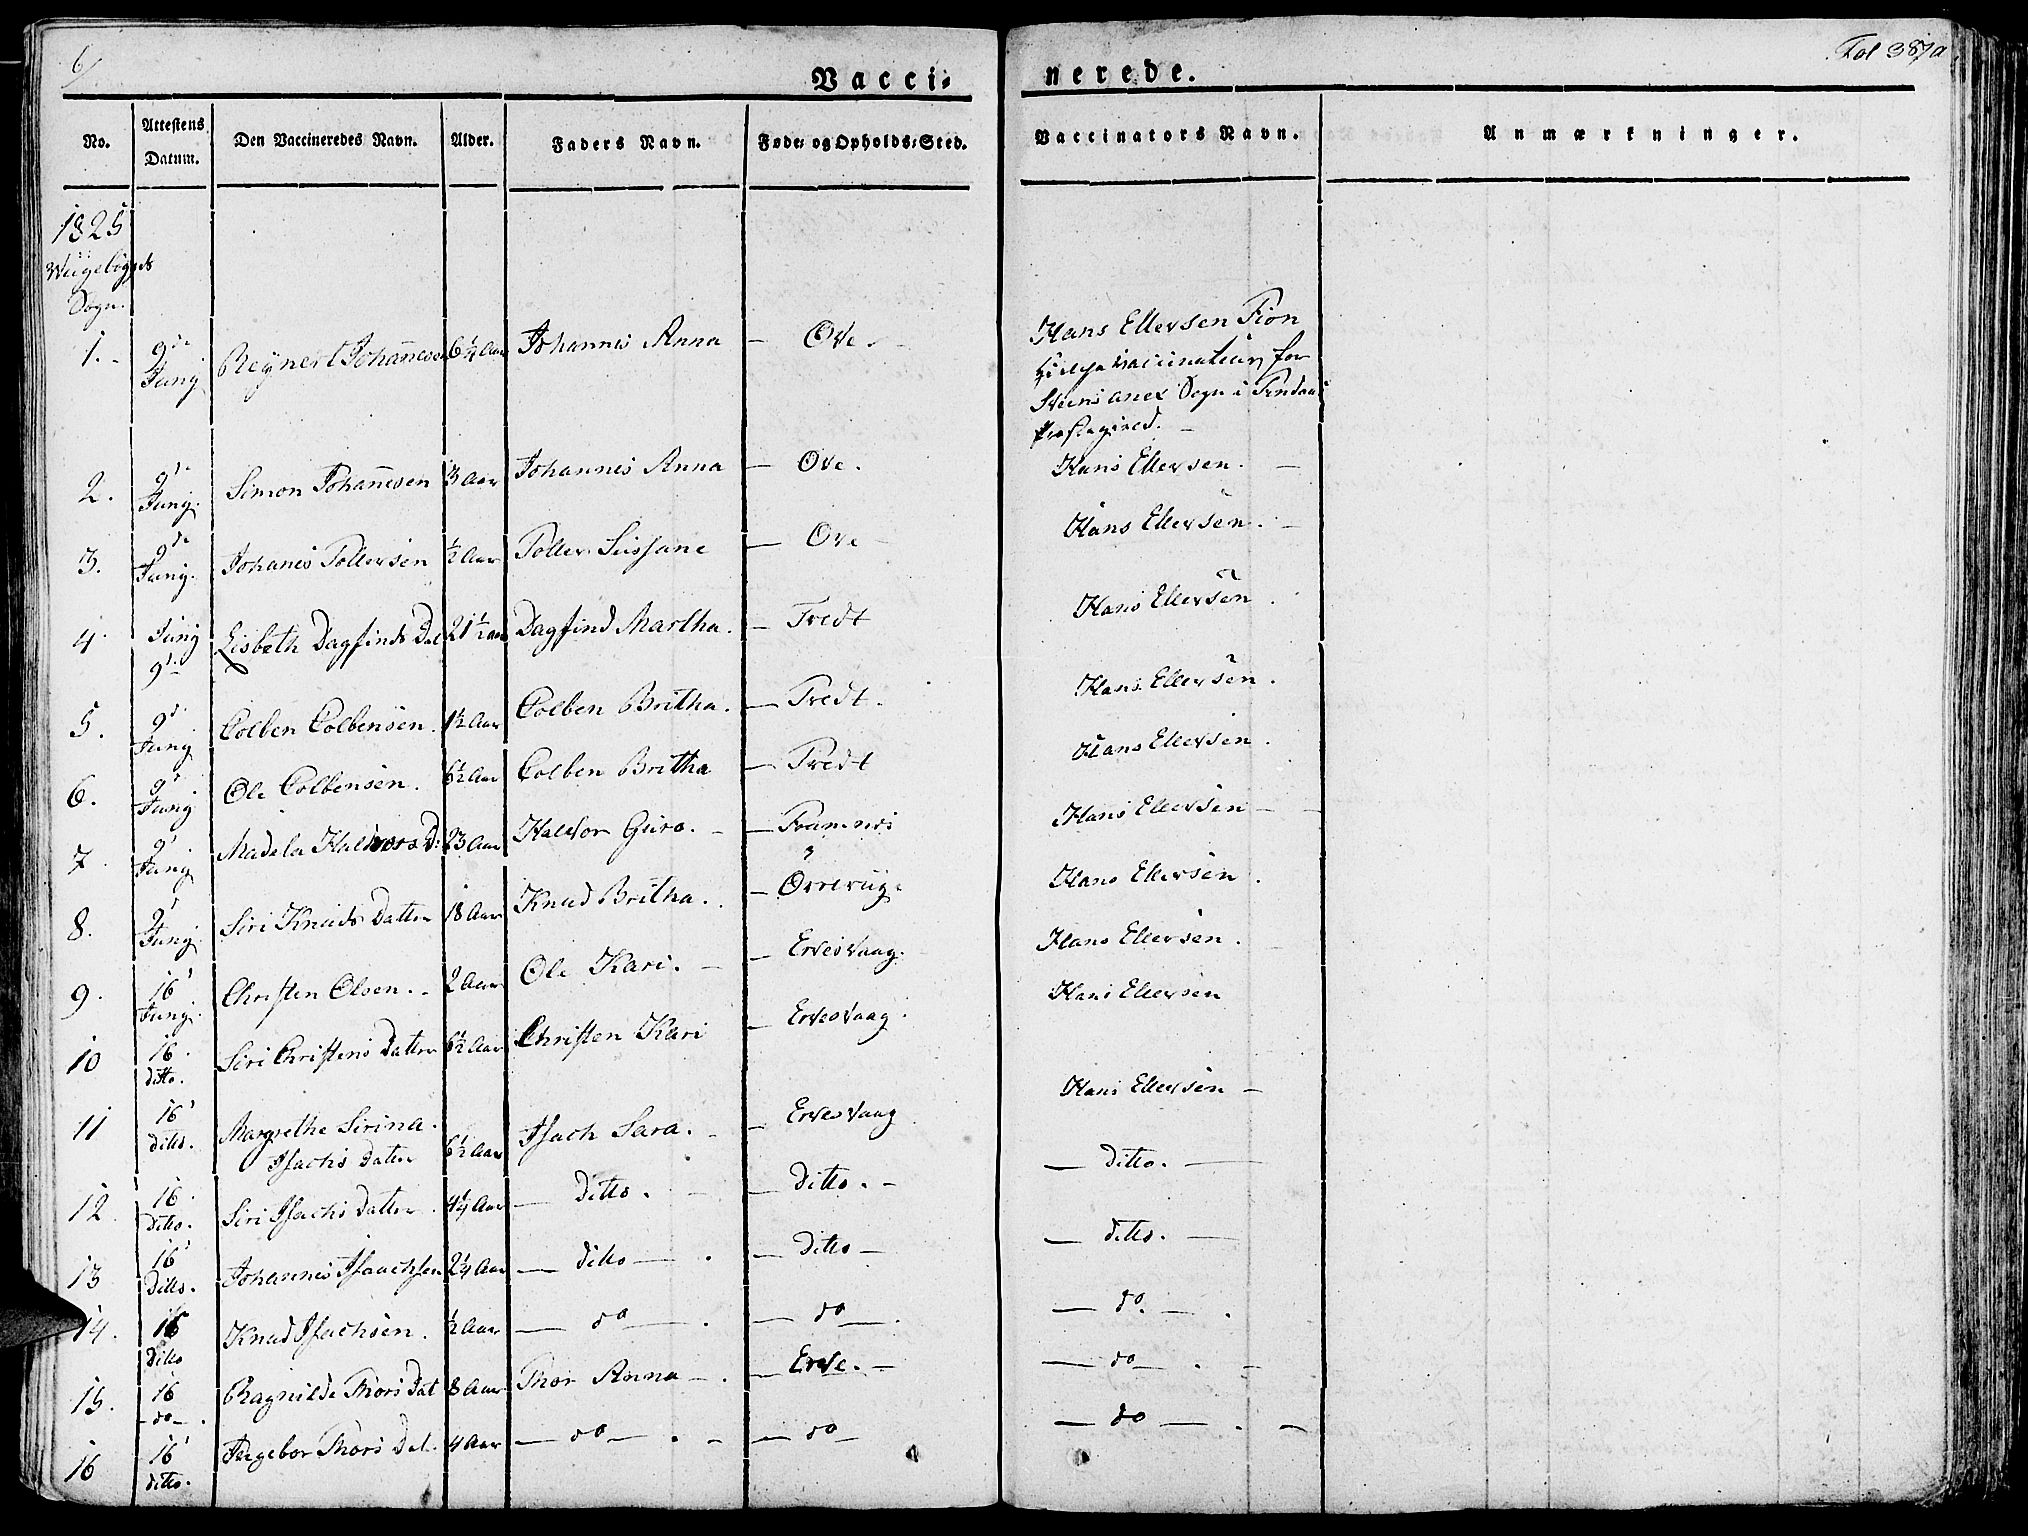 6/
Fol 387a
Vacci-
nerede.
No.
Attestens Datum.
Den Vaccineredes Navn.
Alder.
Faders Navn.
Føde- og Opholds-Sted.
Vaccinators Navn.
Anmærkninger.
1825
Sogn.
1. 9de Junij Reynert Johannesen 6¼ Aar Johannes Anna — Ove. Hans Ellersen
Vaccinateur for
anex Sogn i
Præstegield.
2. 9de Junij. Simon Johannesen 3 Aar Johannes Anna — Ove. Hans Ellersen. —
3. 9de Junij. Johanes Tollersen ½ Aar Toller Sussane — Ove Hans Ellersen. —
4. Junij 9de Lisbeth Dagfinds Dat 21½ aar Dagfind Martha. — Tredt Hans Ellersen.
5. 9de Junij Colben Colbensen. 1½ Aar Colben Britha. — Tredt. Hans Ellersen.
6. 9de Junij Ole Colbensen. 6½ Aar Colben Britha — Tredt Hans Ellersen.
7. 9de Junij Madela Haldvors D: 23 Aar Haldvor Guro. — Framnes Hans Ellersen —
8. 9de Junij. Siri Knuds Datter 18 Aar Knud Britha. — Hans Ellersen.
9. 16 Junij. Christen Olsen. 2 Aar Ole Kari. — Ervesvaag. Hans Ellersen.
10 16. ditto. Siri Christens Datter 6½ Aar Christen Kari — Ervesvaag. Hans Ellersen
11 16 ditto. Margrethe Sirina.
Isachs Datter 6½ Aar Isach Sara. — Ervesvaag Hans Ellersen —
12. 16. Ditto. Siri Isachs Datter 4¼ Aar — Ditto. — Ditto. — — ditto. —
13 16 Ditto. Johannes Isaachsen 2¼ Aar — ditto — — Ditto — — ditto. —
14. 16 Ditto Knud Isachsen. ½ Aar — do — — do — — do. —
15. 16 — do — Ragnilde Thors Dat 8 Aar Thor Anna — — Erve. — — do —
16 16 ditto. Ingebor Thors Dat. 4 Aar — do — — do — — do —